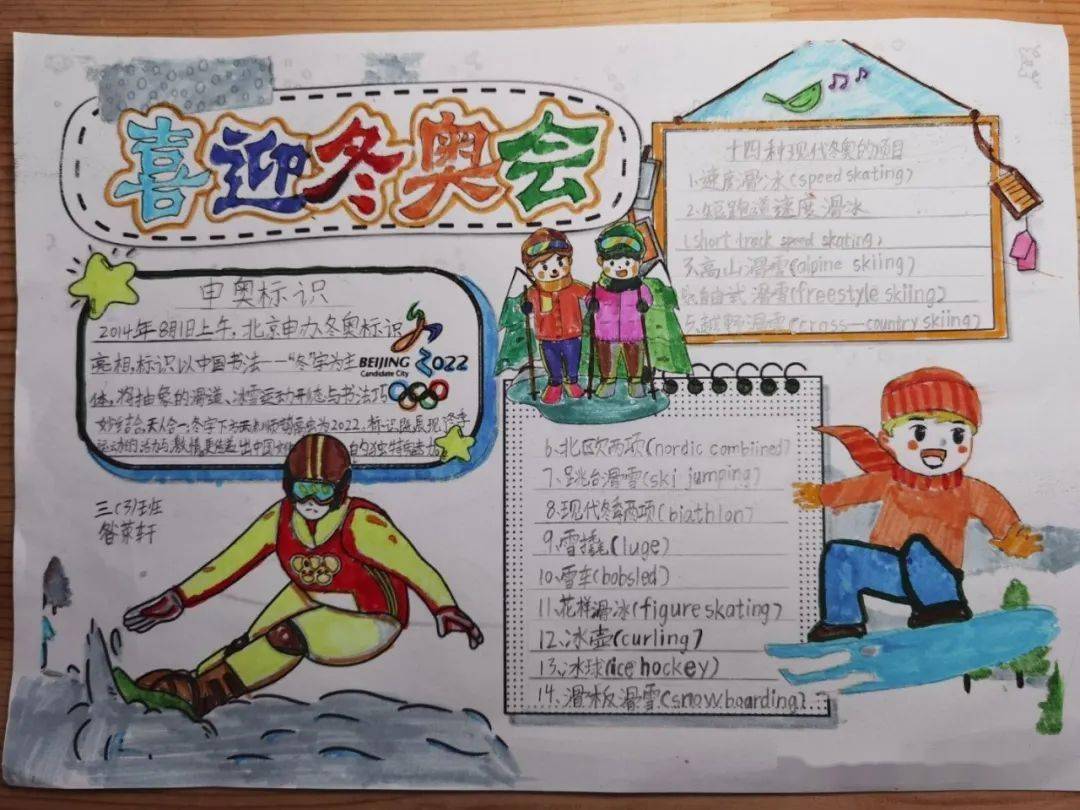 喜迎冬奥会
申奥标识
2014年8月1日上午，北京申办冬奥标识
亮相，标识以中国书法——“冬”字为主
体，将抽象的滑道、冰雪运动形态与书法巧
妙结合，天人合一，冬字下为2022，标识既展现冬季
运动的活力与激情更传递出中国文化的独特魅力。
BEIJING 2022
Candidate City
三(3)班
昝菉轩
十四种现代冬奥的项目
1.速度滑冰(speed skating)
2.短跑道速度滑冰
(short track speed skating)
3.高山滑雪(alpine skiing)
4.自由式滑雪(freestyle skiing)
5.越野滑雪(cross—country skiing)
6.北欧两项(nordic combiined)
7.跳台滑雪(ski jumping)
8.现代冬季两项(biathlon)
9.雪撬(luge)
10.雪车(bobsled)
11.花样滑冰(figure skating)
12.冰壶(curling)
13.冰球(ice hockey)
14.滑板滑雪(snowboarding).